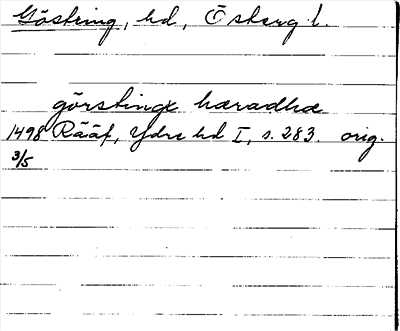 Göstring, hd, Östergöt. l.
görstinge hæradhæ
1498 Rääf, Ydre hd I, s. 283. orig.
3/5